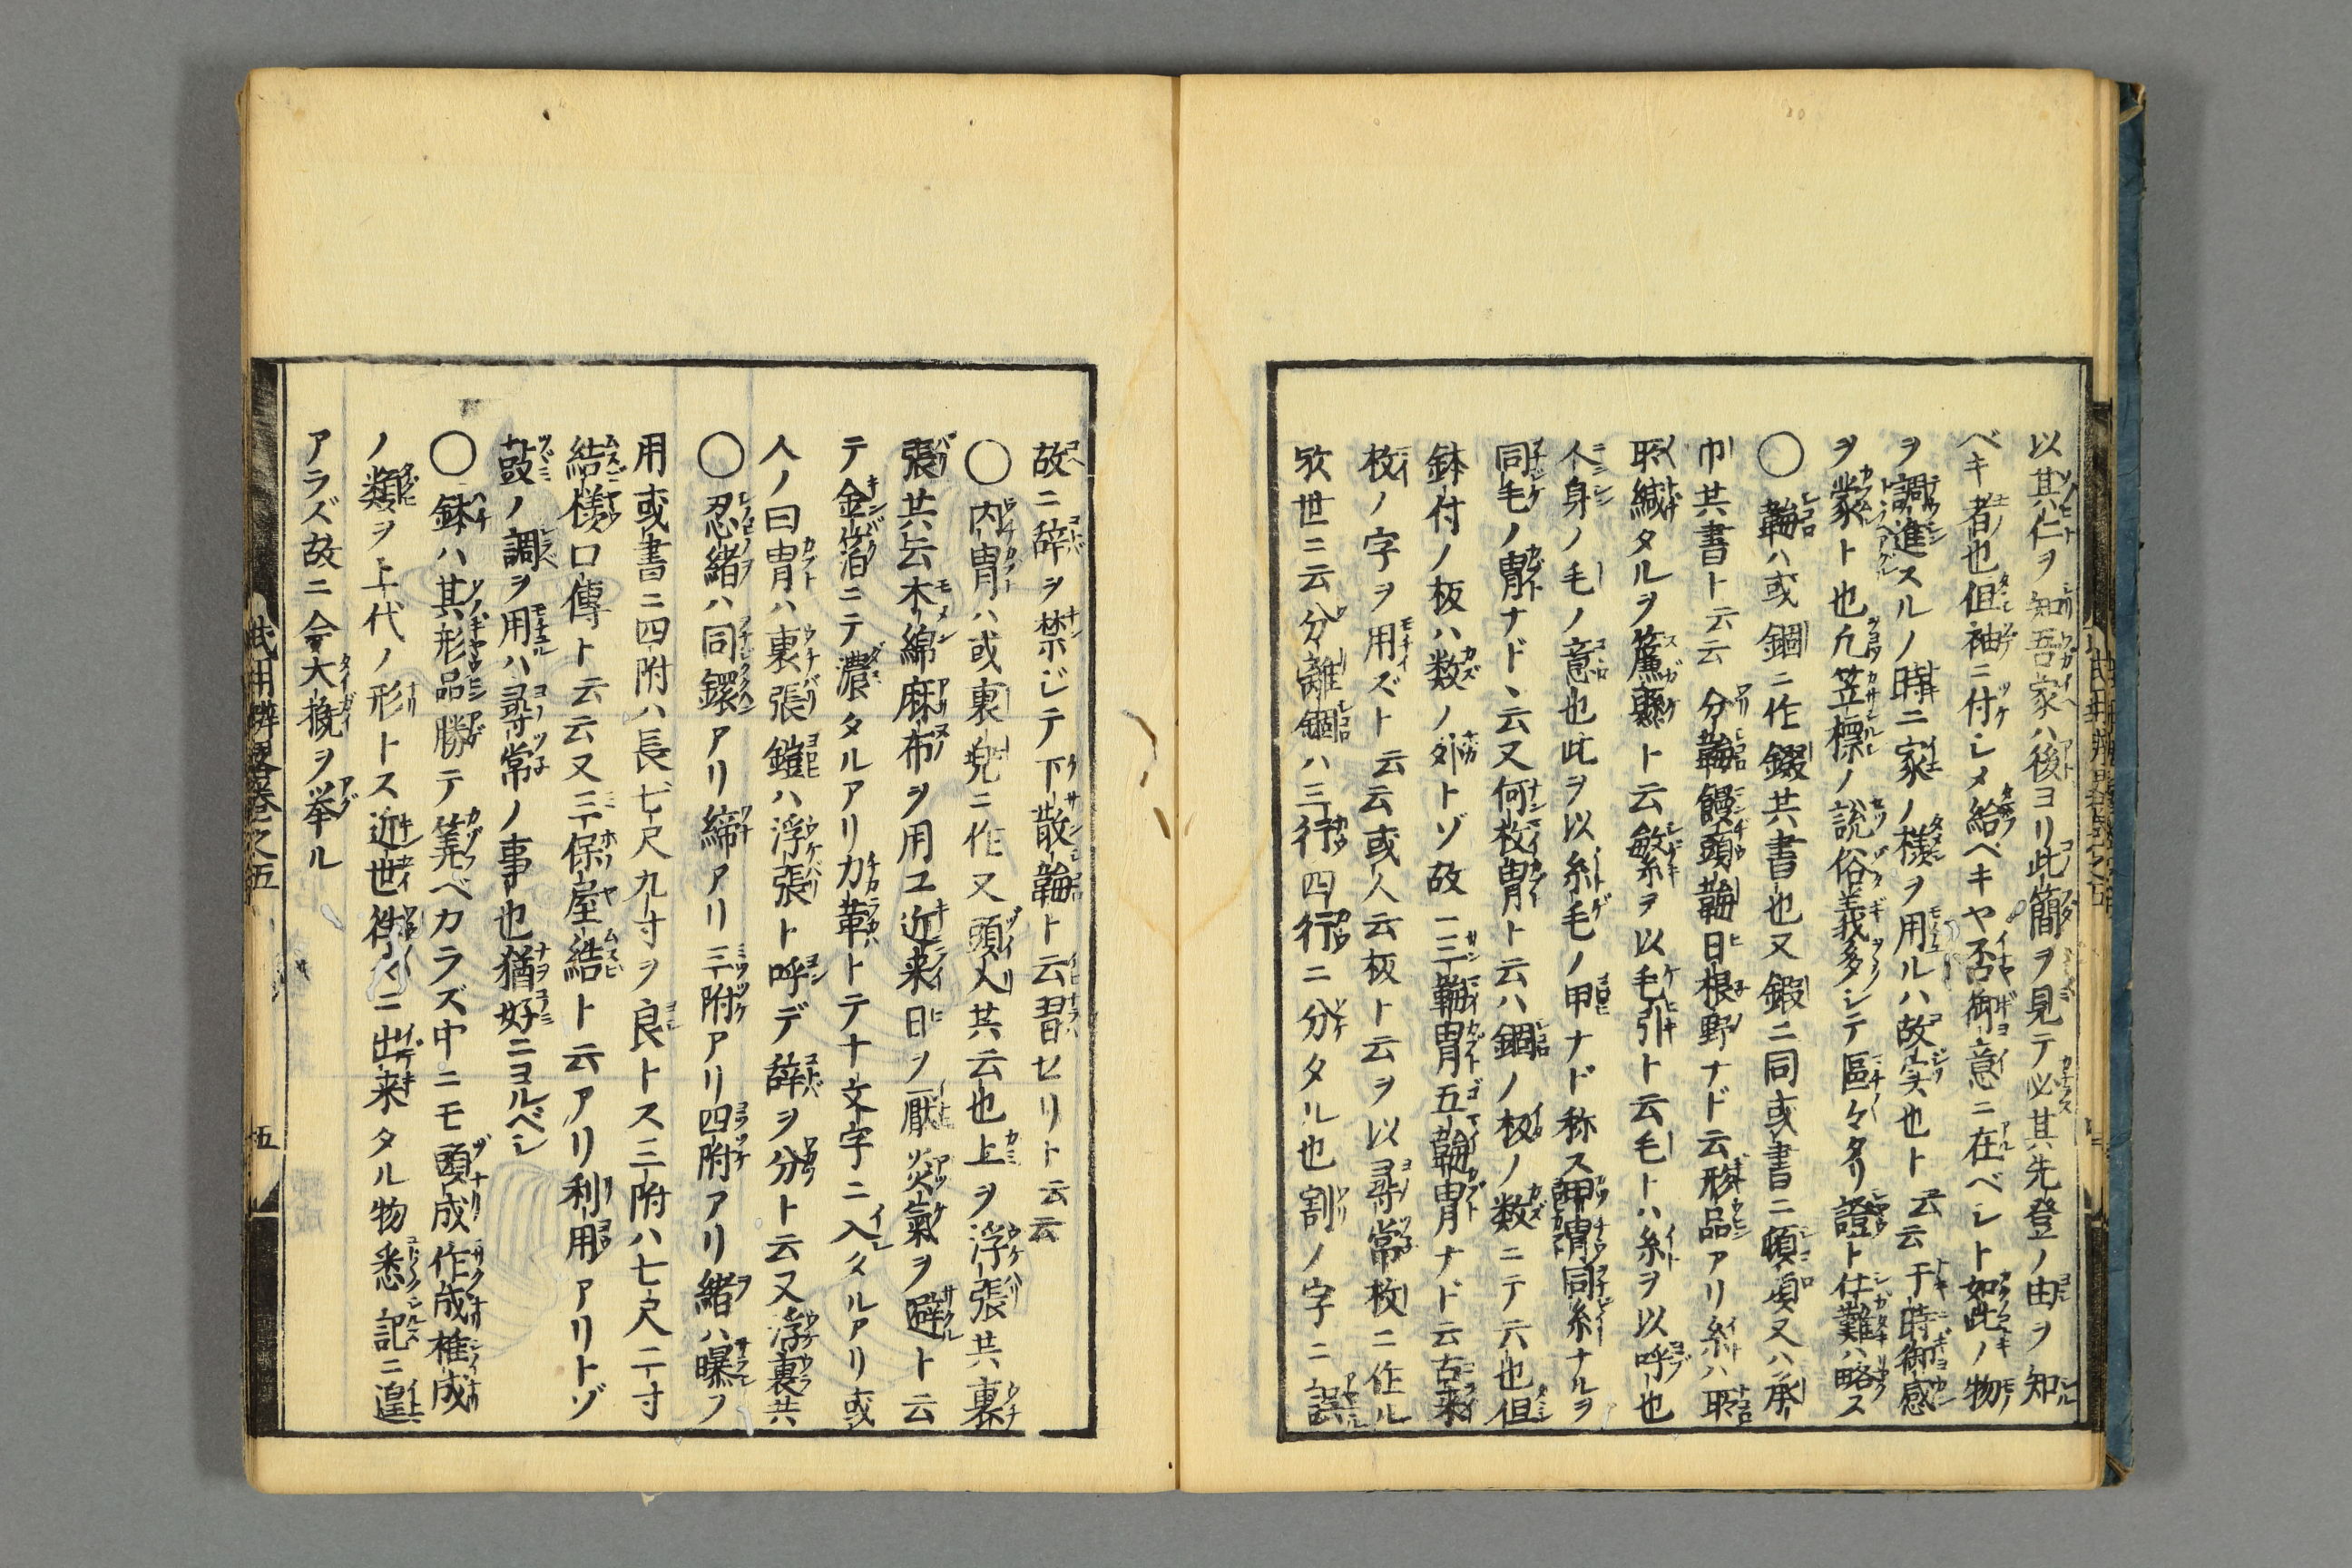 以其仁ヲ知吾家ハ後ヨリ此簡ヲ見テ必其先登ノ由ヲ知
ベキ者也但袖ニ付シメ給ベキヤ否御意ニ在ベシト如此ノ物
ヲ調進スルノ時ニ家ノ様ヲ用ルハ故実也ト云云于時御感
ヲ蒙ト也凢笠標ノ説俗義多シテ區々タリ證ト仕難ハ略ス
○𩊱ハ或錮ニ作錣共書也又錏ニ同或書ニ頓項又ハ承
巾共書ト云云 分𩊱饅頭𩊱日根野ナド云形品アリ糸ハ耴
耴縅タルヲ篶懸ト云敏糸ヲ以毛引ト云毛トハ糸ヲ以呼也
人身ノ毛ノ意也此ヲ以糸毛ノ甲ナド称ス甲冑同糸ナルヲ
同毛ノ冑ナド云又何枚冑ト云ハ錮ノ板ノ数ニテ云也但
鉢付ノ板ハ数ノ外トゾ故ニ三𩊱冑五𩊱冑ナド云古来
枚ノ字ヲ用ズト云云或人云板ト云ヲ以尋常枚ニ作ル
欤世ニ云分離錮ハ三行四行ニ分タル也割ノ字ニ誤
故ニ辞ヲ禁ジテ下散𩊱ト云習セリト云云
○内冑ハ或裏兜ニ作又頭入共云也上ヲ浮張共裏
張共云木綿麻布ヲ用ユ近来日ヲ厭炎氣ヲ避ト云
テ金箔ニテ濃タルアリ力革トテ十文字ニ入タルアリ或
人ノ曰冑ハ裏張鎧ハ浮張ト呼デ辞ヲ分ト云又浮裏共
○忍緒ハ同鐶アリ締アリ三附アリ四附アリ緒ハ曝ヲ
用或書ニ四附ハ長七尺九寸ヲ良トス三附ハ七尺二寸
結様口傳ト云云又三保屋結ト云アリ利用アリトゾ
鼓ノ調ヲ用ハ尋常ノ事也猶好ニヨルベシ
○鉢ハ其形品勝テ筭ベカラズ中ニモ頭成作成椎成
ノ類ヲ上代ノ形トス近世往々ニ出来タル物悉記ニ遑
アラズ故ニ今大槩ヲ挙ル
武用辨略巻之五
五